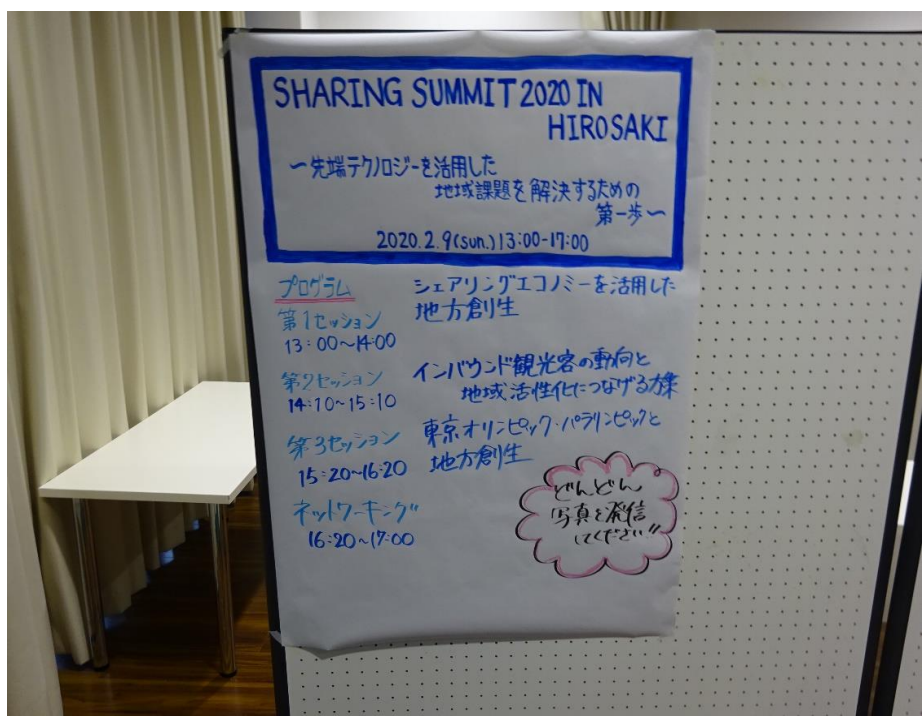 SHARING SUMMIT 2020 IN
HIROSAKI
〜先端テクノロジーを活用した
地域課題を解決するための
第一歩〜
2020.2.9(sun.)13:00-17:00
プログラム
第1セッション
13:00〜14:00
シェアリングエコノミーを活用した
地方創生
第2セッション
14:10〜15:10
インバウンド観光客の動向と
地域活性化につなげる方策
第3セッション
15:20〜16:20
東京オリンピック・パラリンピックと
地方創生
ネットワーキング
16:20〜17:00
どんどん
写真を発信
してください!!